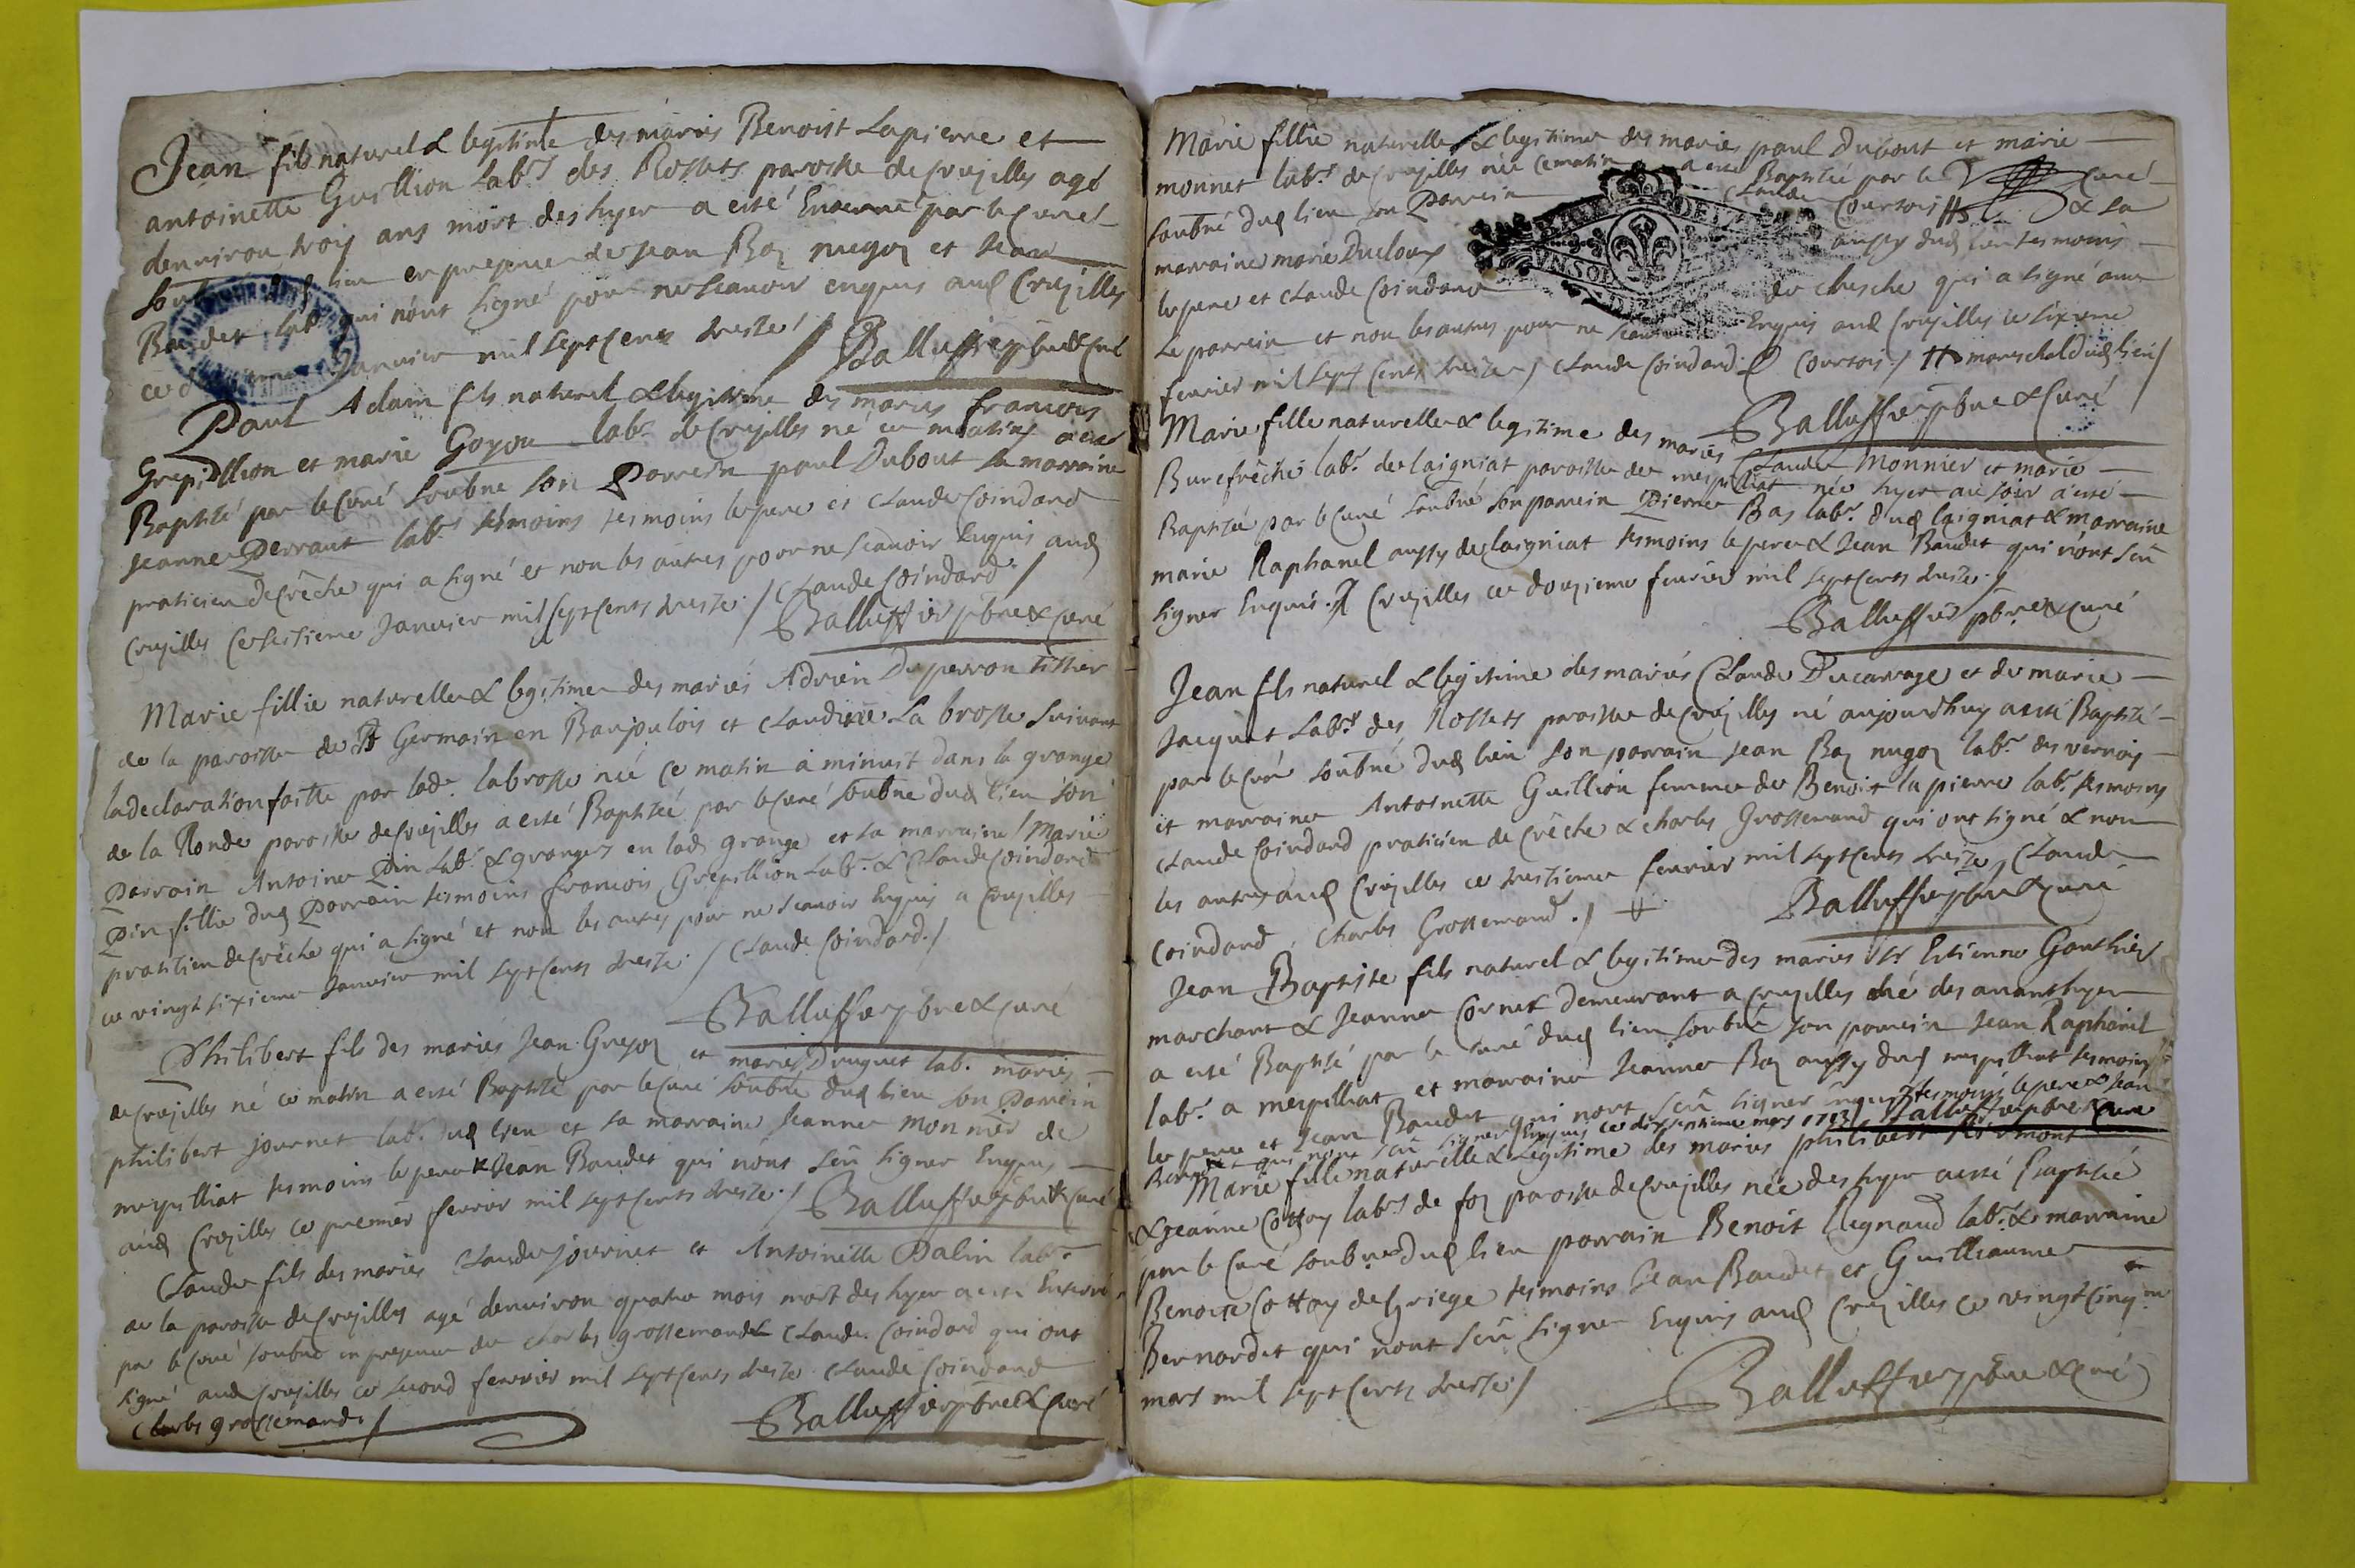 Jean fils naturel & legitime des mariés Benoist Lapierre et
antoinette Guillion labrs des Rossets paroisse de Crujilles agé
denviron trois ans mort des hyer a esté Enterré par le Curé
soubné dud lieu en presence de Jean Baz nugoz et Jean
Baudet labr qui nont signé pour ne scavoir enquis aud Crujilles
ce Janvier mil sept cents treize / Balluffier pbre & Curé
Paul Adam fils naturel & legitime des mariés francois
Grepillion et marie Goyon labr de Crujilles né ce matin a esté
Baptisé par le Curé soubné son Parrein paul Dubout sa marraine
Jeanne Perraut labrs tesmoins tesmoins le pere et Claude Coindard
praticien de Crêche qui a signé et non les autres pour ne scavoir Enquis aud
Crujilles ce Janvier mil sept cents treize. / Claude Coindard /
Balluffier pbre & curé
Marie fillie naturelle & legitime des mariés Adrien Duperron tissier
de la paroisse de St Germain en Baujoulois et Claudine La brosse suivant
la declaration faitte par lade. labrosse née ce matin a minuit dans la grange
de la Ronde paroisse de Crujilles a esté Baptisée par le Curé soubné dud lieu son
Parrain Antoine Pin labr. & granger en lad grange et sa marraine Marie
Pin fillie dud Parrain tesmoins francois Grepillion labr. & Claude Coindard
pratitien de Crêche qui a signé et non les autres pour ne scavoir Enquis a Crujilles
ce vingt sixieme Janvier mil sept cents treize. / Claude Coindard. /
Balluffier pbre & curé
Philibert fils des mariés Jean Grejoz et marie Druguet lab. mariés
de Crujilles né ce matin a esté Baptisé par le Curé soubné dud lieu son Parrein
philibert journet labr. dud lieu et sa marraine Jeanne monnier de
mespilliat tesmoins le pere & Jean Baudet qui nont sçû signer Enquis
aud Crujilles ce premier fevrier mil sept cents treize. / Balluffier pbre & curé
Claude fils des mariés Claude journet et Antoinette Palin labrs
de la paroisse de Crujilles agé denviron quatre mois mort des hyer a esté Enterré
par le Curé soubné en presence de Charles grossemand & Claude Coindard qui ont
signé aud Crujilles ce second fevrier mil sept cents treize Claude Coindard
Charles grossemand. / Balluffier pbre & Curé
Marie fillie naturelle & legitime des mariés paul Dubout et marie
monnet labrs. de Crujilles née ce matin a esté Baptisée par le curé
soubné dud lieu son Parrein Claude Courtois & sa
marraine marie Ducloux aussy dud lieu tesmoins
le pere et Claude Coindard de Cresche qui a signé avec
Le parrein et non les autres pour ne scavoir Enquis aud Crujilles ce sixieme
fevrier mil sept cents treize / Claude Coindard C Courtois / mareschal dud lieu /
Balluffier pbre & Curé
Marie fille naturelle & legitime des mariés Claude Monnier et marie
Burefrêche labr. de laigniat paroisse de mespilliat née hyer au soir a esté
Baptisée par le Curé soubné son parrein Pierre Bas labr. dud laigniat & marraine
marie Raphanel aussy de laigniat tesmoins le pere & Jean Baudet qui nont sçû
signer Enquis. A Crujilles ce douzieme fevrier mil sept cents treize. /
Balluffier pbre & curé
Jean fils naturel & legitime des mariés Claude Ducarrage et de marie
Jacquet labrs des Rossets paroisse de Crujilles né aujourdhuy a esté Baptisé
par le Curé soubné dud lieu son parrain Jean Baz nugoz labr. des vernois
et marraine Antoinette Guillion femme de Benoist lapierre labr. tesmoins
Claude Coindard praticien de Crêche & charles Grossemand qui ont signé & non
les autres aud Crujilles ce fevrier mil sept cents treize, Claude
Coindard, Charles Grossemand. / Balluffier pbre & curé
Jean Baptiste fils naturel & legitime des mariés sr Estienne Gauthier
marchant & Jeanne Cornet demeurant a Crujilles né des avanthyer
a esté Baptisé par le curé dud lieu soubné son parrein Jean Raphanel
labr. a mespilliat et marraine Jeanne Baz aussy dud mespilliat tesmoins
le pere et Jean Baudet qui nont sçû signer enquis tesmoins le pere & Jean
Baudet qui nont sçû signer Enquis ce dix septieme mars 1713 / Balluffier pbre & curé
Marie fille naturelle & Legitime des mariés philibert
& Jeanne Cottoy labrs de foz paroisse de Crujilles née des hyer a esté Baptisée
par le Curé soubné dud lieu parrain Benoist Regnaud labr. & marraine
Benoite Cottoy de Griege tesmoins Jean Baudet et Guilliaume
Bernardet qui nont sçû signer Enquis aud Crujilles ce vingt cinqme
mars mil sept cents treize. /
Balluffier pbre & curé